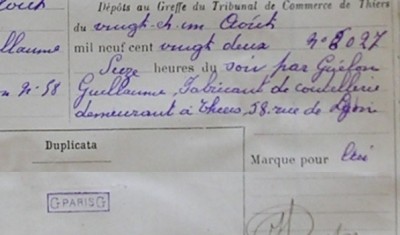 Dépôts au Greffe du Tribunal de Commerce de Thiers
du vingt-et-un Août
mil neuf cent vingt deux N°2027
Seize heures du soir par
Guillaume, Fabricant de coutellerie
demeurant à Thiers, 58, rue de Lyon
llaume
N°58
Duplicata
Marque pour
GPARISG